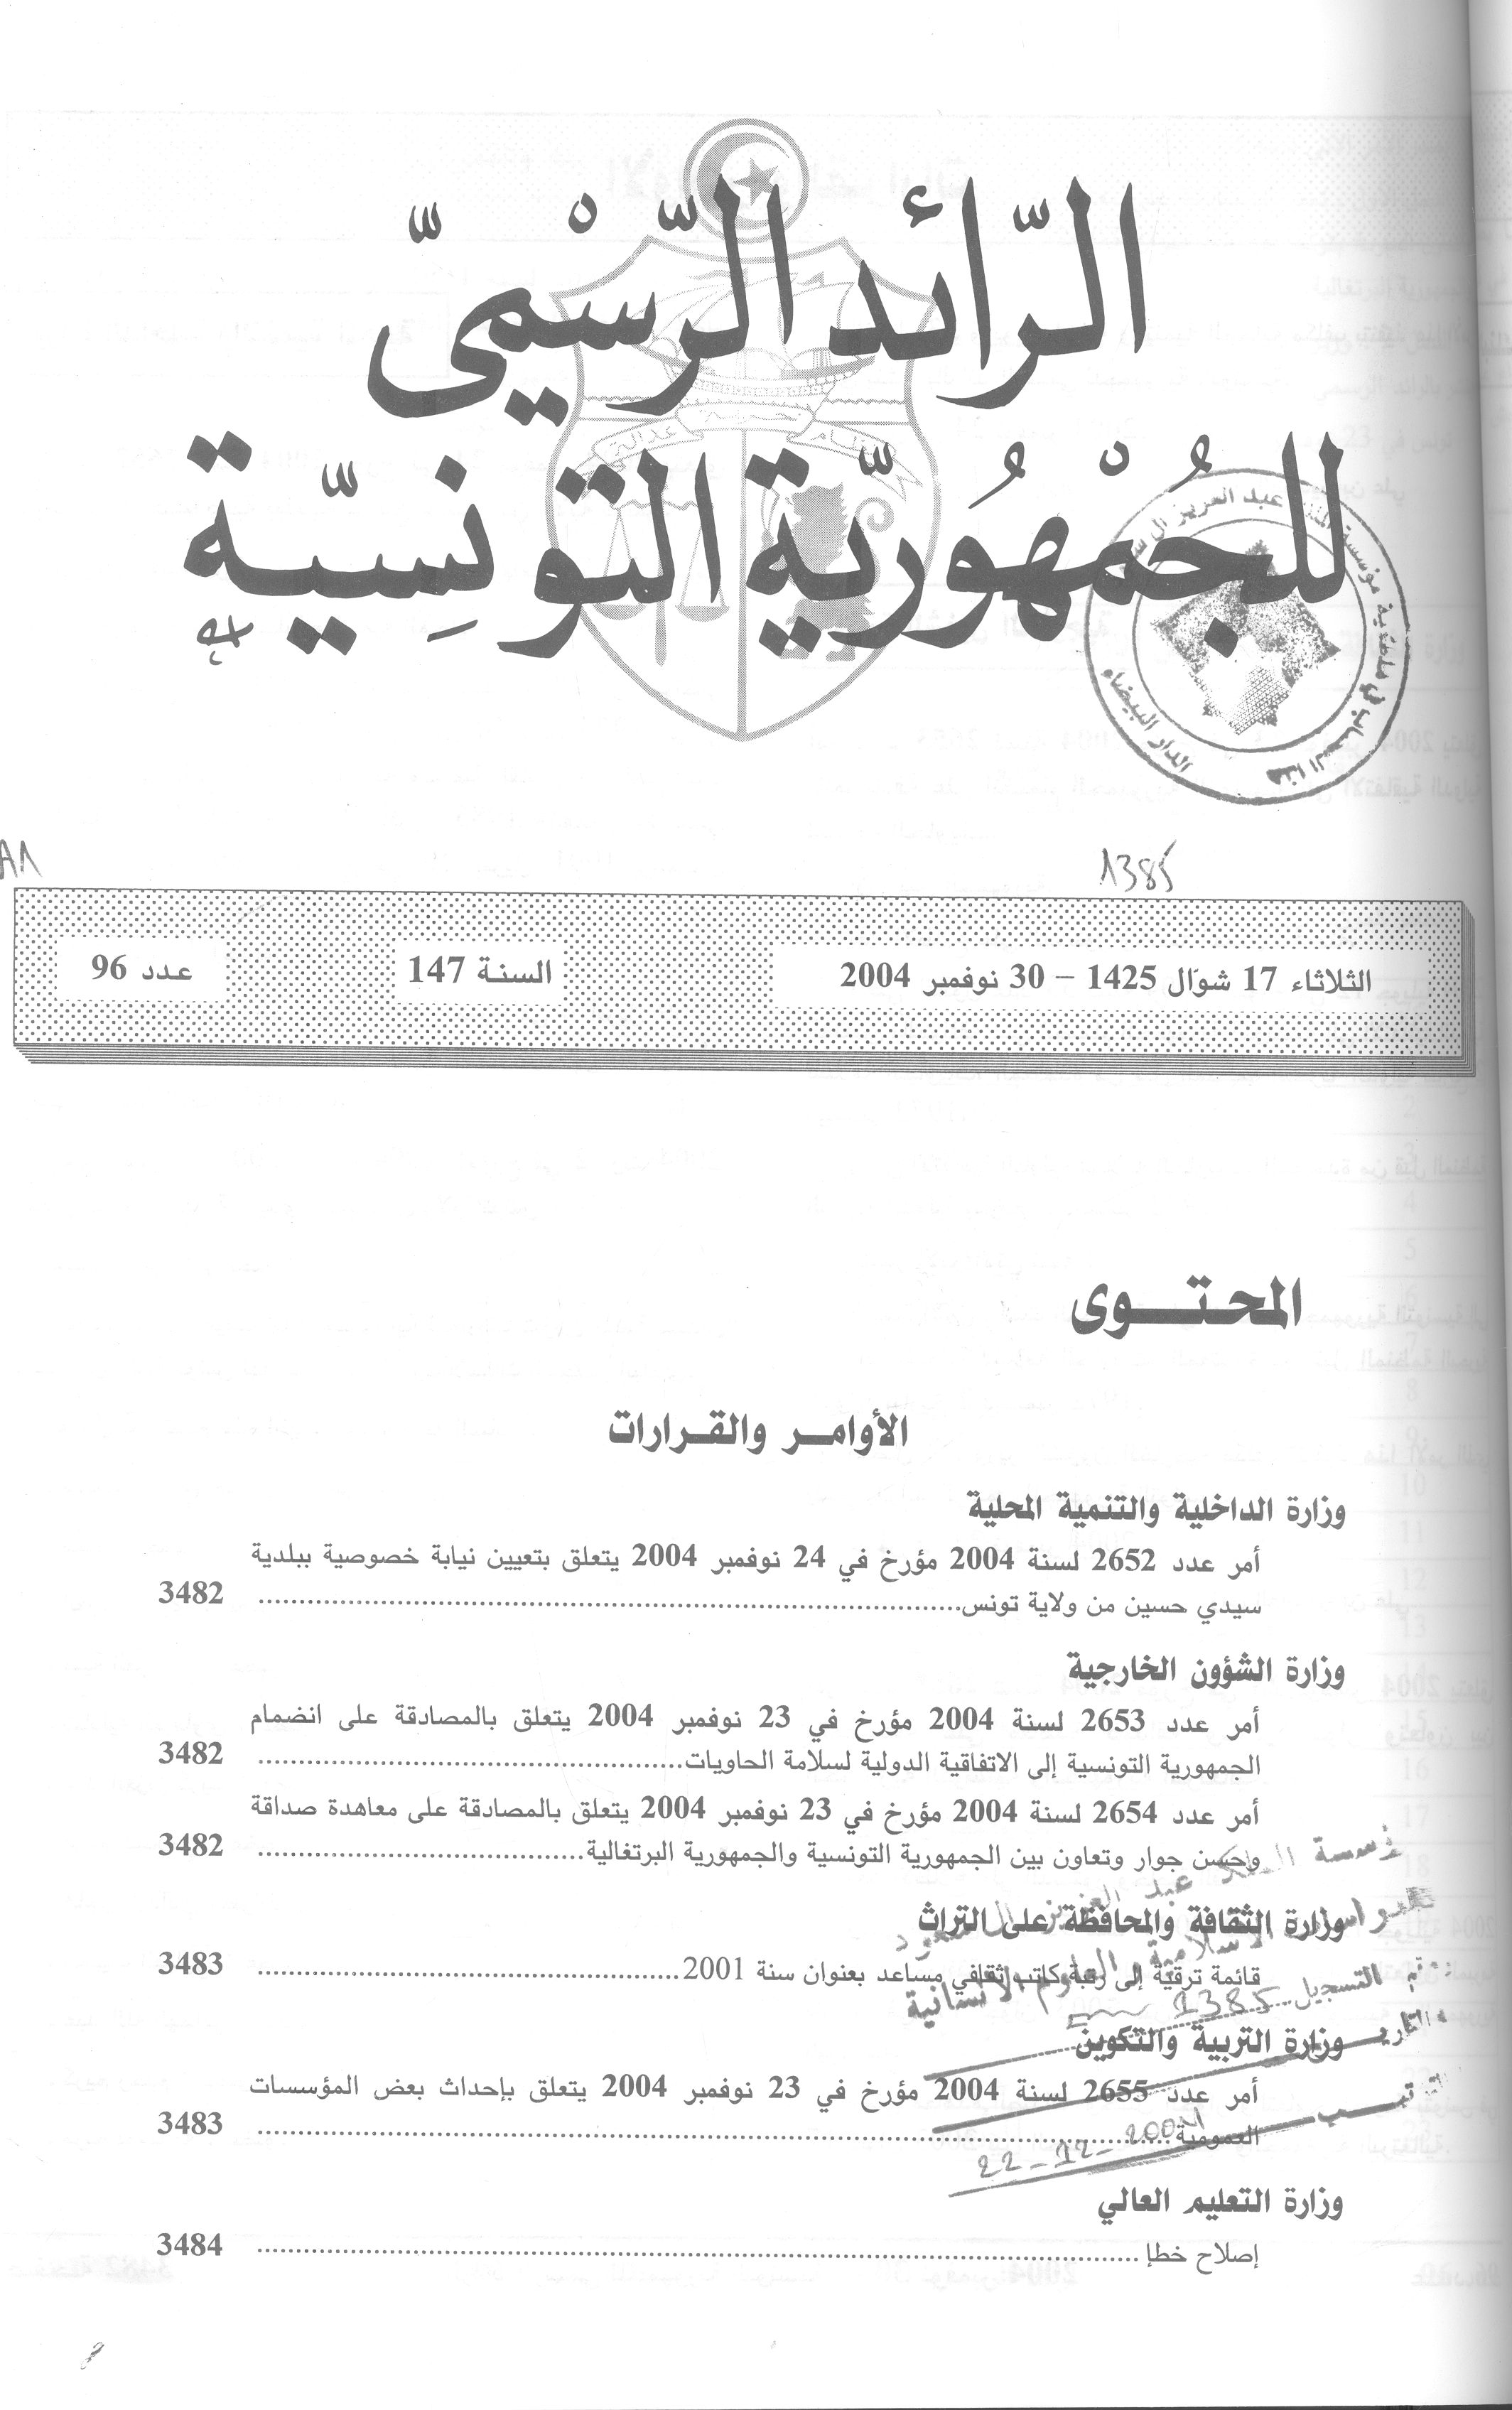 الرّائد الرّسْميّ
للجُمْهُوريّة التّونِسيّة
نظام حرية عدالة
مؤسسة الملك عبد العزيز آل
الدار البيضاء
1385
الثلاثاء 17 شوّال 1425 – 30 نوفمبر 2004
السنة 147
عدد 96
المحتوى
الأوامر والقرارات
وزارة الداخلية والتنمية المحلية
أمر عدد 2652 لسنة 2004 مؤرخ في 24 نوفمبر 2004 يتعلق بتعيين نيابة خصوصية ببلدية
سيدي حسين من ولاية تونس 3482
وزارة الشؤون الخارجية
أمر عدد 2653 لسنة 2004 مؤرخ في 23 نوفمبر 2004 يتعلق بالمصادقة على انضمام
الجمهورية التونسية إلى الاتفاقية الدولية لسلامة الحاويات 3482
أمر عدد 2654 لسنة 2004 مؤرخ في 23 نوفمبر 2004 يتعلق بالمصادقة على معاهدة صداقة
وحسن جوار وتعاون بين الجمهورية التونسية والجمهورية البرتغالية 3482
وزارة الثقافة والمحافظة على التراث
قائمة ترقية إلى رتبة كاتب ثقافي مساعد بعنوان سنة 2001 3483
التسجيل 1385
وزارة التربية والتكوين
أمر عدد 2655 لسنة 2004 مؤرخ في 23 نوفمبر 2004 يتعلق بإحداث بعض المؤسسات
العمومية 3483
22-12-2004
وزارة التعليم العالي
إصلاح خطإ 3484